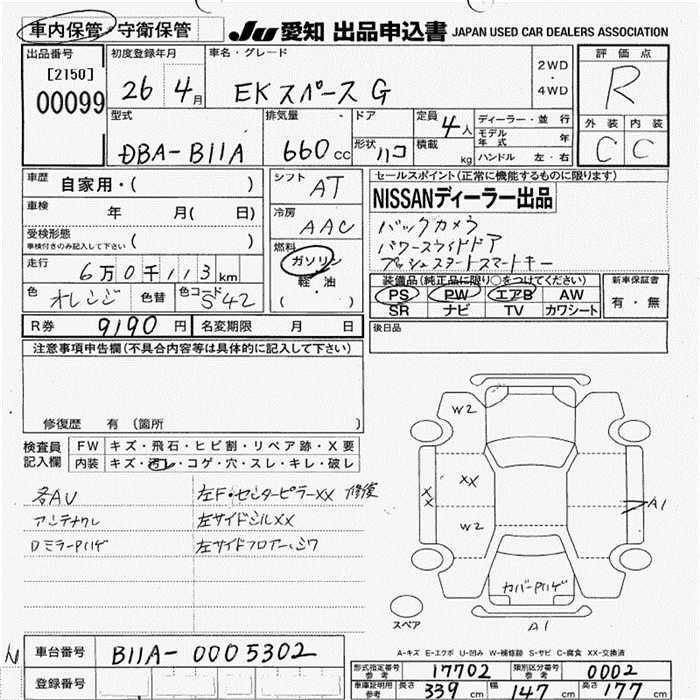 車内保管・守衛保管
JU 愛知 出品申込書 JAPAN USED CAR DEALERS ASSOCIATION
出品番号 [2150] 00099
初度登録年月 26年 4月
車名・グレード EKスペースG
2WD・4WD
評価点 R
外装 C 内装 C
型式 DBA-B11A
排気量 660cc
ドア 形状 ハコ
定員 4人
積載 kg
ディーラー・並行
モデル年式 年
ハンドル 左・右
車歴 自家用・( )
シフト AT
セールスポイント(正常に機能するものに限ります)
NISSANディーラー出品
バックカメラ
パワースライドドア
プッシュスタートスマートキー
車検 年 月( 日)
冷房 AAC
受検形態 車検付きのみ記入して下さい ( )
燃料 ガソリン 軽・油 ( )
走行 6万0千113km
色 オレンジ 色替 色コード S42
装備品(純正品に限り○をつけてください)
PS PW エアB AW
SR ナビ TV カワシート
新車保証書 有・無
R券 9190円 名変期限 月 日
後日品
注意事項申告欄(不具合内容等は具体的に記入して下さい)
修復歴 有 (箇所 )
検査員記入欄
FW キズ・飛石・ヒビ割・リペア跡・X要
内装 キズ・汚レ・コゲ・穴・スレ・キレ・破レ
各AU 左F・センターピラーXX 修復
アンテナクレ 左サイドシルXX
DミラーPハゲ 左サイドフロアーシワ
W2
XX
XX
W2
A1
カバーPハゲ
A1
スペア
A-キズ E-エクボ U-凹み W-補修跡 S-サビ C-腐食 XX-交換済
車台番号 B11A-0005302
登録番号
型式指定番号 参考 17702 類別区分番号 参考 0002
車庫証明用 参考 長さ 339cm 幅 147cm 高さ 177cm